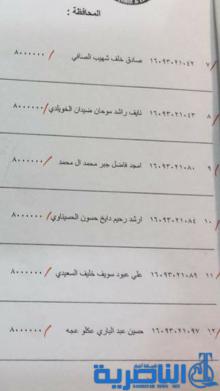 المحافظة :
٧ / ١٦٠٩٣٠٢١٠٤٢ صادق خلف شهيب الصافي / ٨٠٠٠٠٠٠
٨ / ١٦٠٩٣٠٢١٠٤٣ نايف راشد موحان ضيدان الخويلدي / ٨٠٠٠٠٠٠
٩ / ١٦٠٩٣٠٢١٠٨٠ امجد فاضل جبر محمد ال محمد / ٨٠٠٠٠٠٠
١٠ / ١٦٠٩٣٠٢١٠٨٤ ارشد رحيم دايخ حسون الحسيناوي / ٨٠٠٠٠٠٠
١١ / ١٦٠٩٣٠٢١٠٨٩ علي عبود سويف خليف السعيدي / ٨٠٠٠٠٠٠
١٢ / ١٦٠٩٣٠٢١٠٩٧ حسين عبد الباري عكلو عجه / ٨٠٠٠٠٠٠
الناصرية